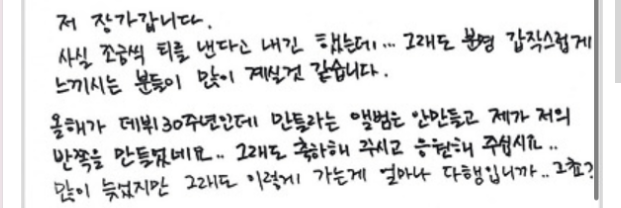 저 장가갑니다.
사실 조금씩 티를 낸다고 내긴 했는데... 그래도 분명 갑작스럽게
느끼시는 분들이 많이 계실것 같습니다.
올해가 데뷔30주년인데 만들라는 앨범은 안만들고 제가 저의
반쪽을 만들었네요.. 그래도 축하해 주시고 응원해 주십시요..
많이 늦었지만 그래도 이렇게 가는게 얼마나 다행입니까..그쵸?